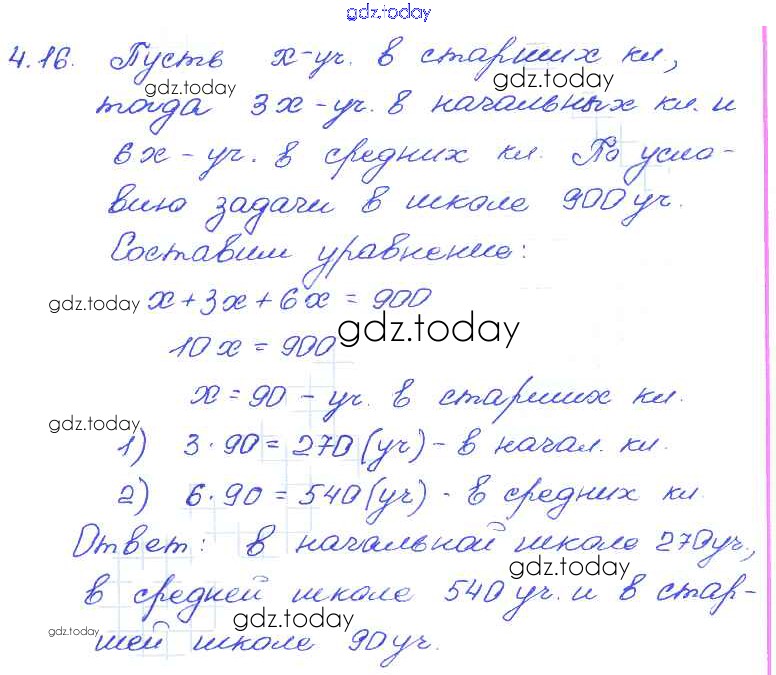 gdz.today
4.16. Пусть x-уч. в старших кл.,
gdz.today gdz.today
тогда 3x-уч. в начальных кл. и
gdz.today
6x-уч. в средних кл. По усло-
вию задачи в школе 900 уч.
Составим уравнение:
gdz.today x+3x+6x=900
gdz.today
10x=900
x=90-уч. в старших кл.
gdz.today
1) 3·90=270(уч)-в начал. кл.
2) 6·90=540(уч)-в средних кл.
Ответ: в начальной школе 270уч.,
gdz.today
в средней школе 540 уч. и в стар-
gdz.today gdz.today
шей школе 90уч.